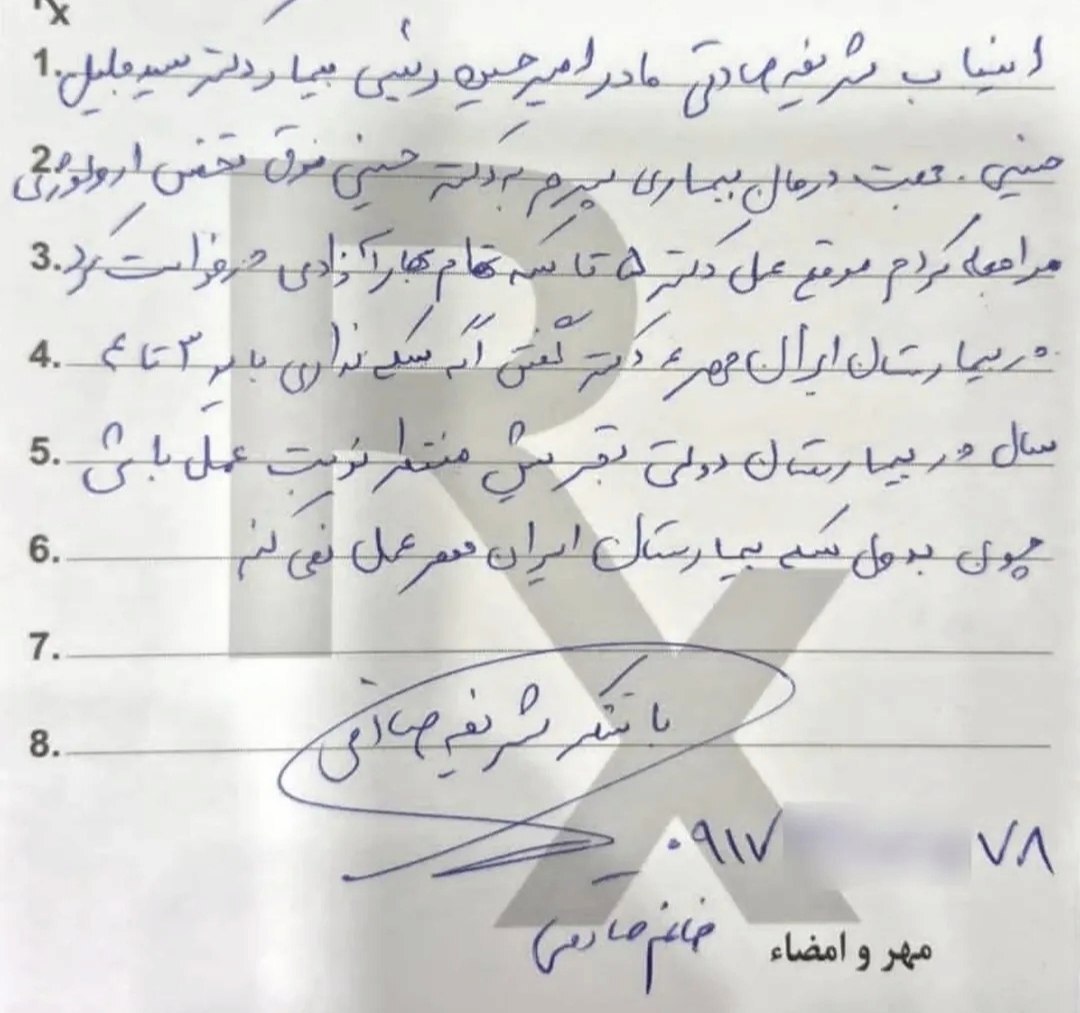 Rx
1. اینجانب شریفه صادقی مادر امیرحسین رئیسی بیمار دکتر سید جلیل
2. حسینی. جهت درمان بیماری پسرم به دکتر حسینی فوق تخصص ارولوژی
3. مراجعه کردم موقع عمل دکتر ۵ تا سکه تمام بهار آزادی درخواست کرد
4. در بیمارستان ایران مهر، دکتر گفتن اگه سکه نداری باید ۳ تا ۴
5. سال در بیمارستان دولتی تجریش منتظر نوبت عمل باشی
6. چون بدون سکه بیمارستان ایران مهر عمل نمی کنم
7.
8. با تشکر شریفه صادقی
۰۹۱۷ ۷۸
خانم صادقی
مهر و امضاء